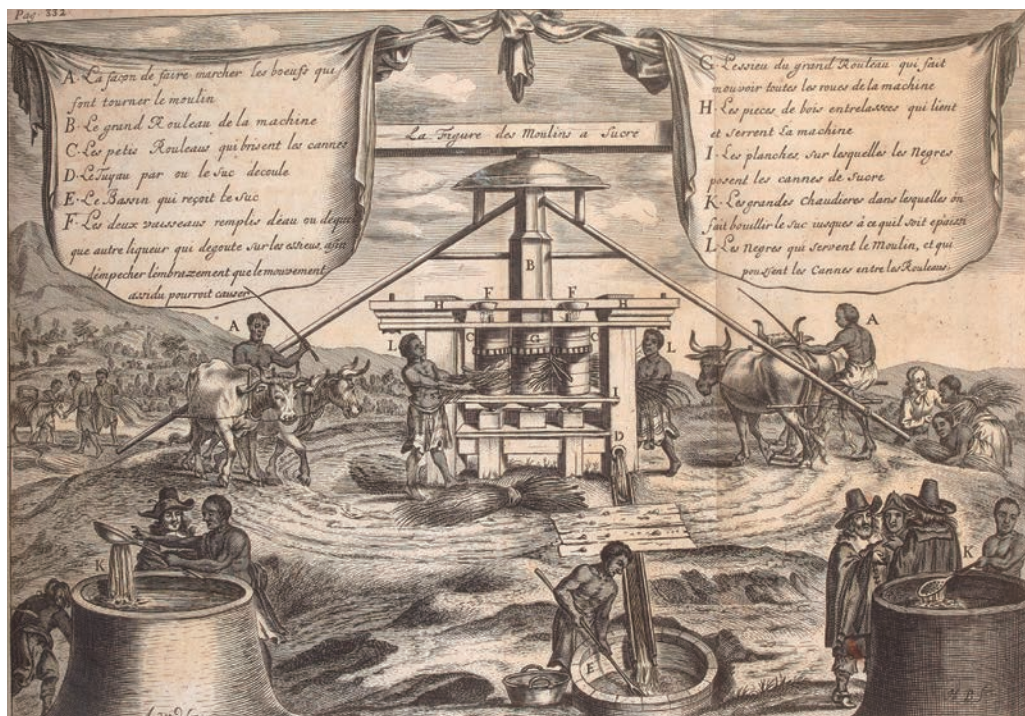 Pag. 332
A. La façon de faire marcher les boeufs qui
font tourner le moulin
B. Le grand Rouleau de la machine
C. Les petis Rouleaus qui brisent les cannes
D. Le Tuyau par ou le suc decoule
E. Le Bassin qui reçoit le suc
F. Les deux vaisseaus remplis déau ou
que autre liqueur qui degoute sur les essieus, afin
démpecher lémbrazement que le mouvement
assidu pourroit causer
La Figure des Moulins a Sucre
G. Léssieu du grand Rouleau qui fait
mouvoir toutes les roues de la machine
H. Les pieces de bois entrelassées qui lient
et serrent la machine
I. Les planches, sur lesquelles les Negres
posent les cannes de sucre
K. Les grandes chaudieres dans lesquelles on
fait bouillir le suc iusques à ce quil soit epaissi
L. Les Negres qui servent le Moulin, et qui
poussent les Cannes entre les Rouleaus.
B
F F
H H
A A
L C G C L
I
D
K K
E